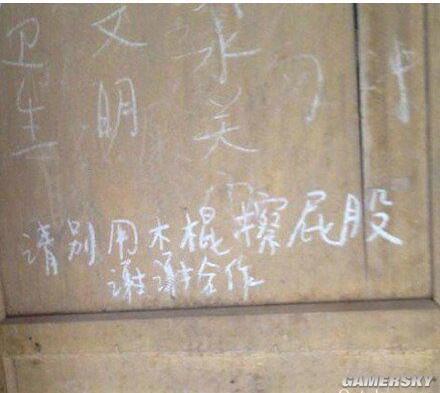 卫生
文明
水关
请别用木棍擦屁股
谢谢合作
GAMERSKY